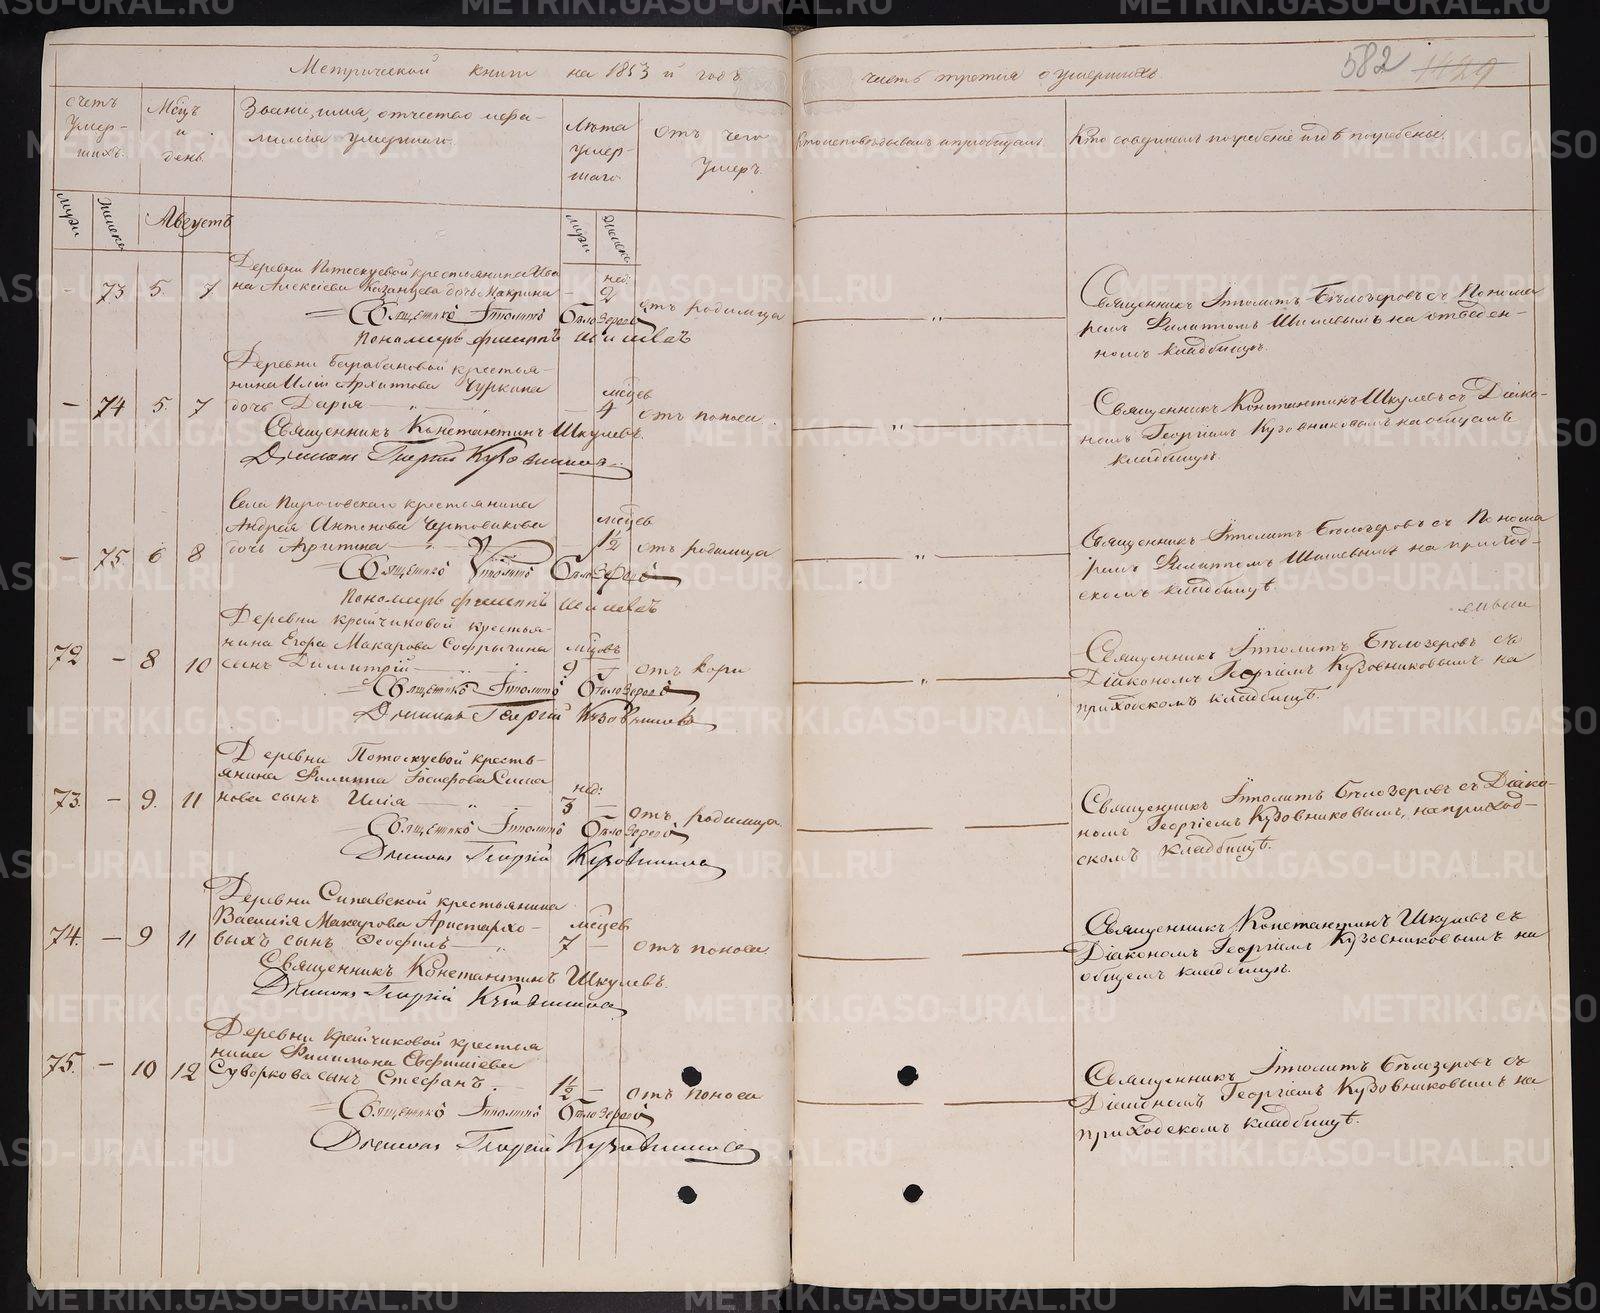 Метрической книги на 1853й годъ
часть третія о умершихъ.
582
1129
счетъ умер-шихъ.
Мѣсяцъ и день.
Званіе, имя, отчество и фа-
милія умершаго.
Лѣта умер-шаго
отъ чего умеръ.
Кто исповѣдывалъ и пріобщалъ.
Кто совершалъ погребеніе и гдѣ погребены.
муж. женск.
Августъ
муж. женск.
Деревни Потоскуевой крестьянина Ива
- 73 5. 7 на Алексѣева Казанцева дочь Макрина - нед: 2 отъ родимца
Священникъ Ипполитъ Бѣлозеровъ
Пономарь Филиппъ Шишевъ
Священникъ Ипполитъ Бѣлозеровъ съ Понома
ремъ Филиппомъ Шишевымъ на отведен-
номъ кладбищѣ.
Деревни Барабановой крестья-
нина Иліи Архипова Чуркина
- 74 5. 7 дочь Дарія - мѣсяцев 4 отъ поноса
Священникъ Константинъ Шкулевъ.
Діаконъ Георгій Кузовниковъ
Священникъ Константинъ Шкулевъ съ Діако-
номъ Георгіемъ Кузовниковымъ на общемъ
кладбищѣ.
Села Пироговскаго крестьянина
Андрея Антонова Чертовикова
- 75. 6 8 дочь мѣсяцев 1½ отъ родимца
Священникъ Ипполитъ Бѣлозеровъ
Пономарь Филиппъ Шишевъ
Священникъ Ипполитъ Бѣлозеровъ съ Понома
ремъ Филиппомъ Шишевымъ на приход-
скомъ кладбищѣ.
Деревни Крайчиковой крестья-
нина Егора Макарова Софрыгина
72 - 8 10 сынъ Димитрій мѣсяцовъ 9 - отъ кори
Священникъ Ипполитъ Бѣлозеровъ
Діаконъ Георгій Кузовниковъ
Священникъ Ипполитъ Бѣлозеровъ съ
Діакономъ Георгіемъ Кузовниковымъ на
приходскомъ кладбищѣ.
Деревни Потоскуевой кресть-
янина Филиппа Іосифова Сима
73. - 9. 11 нова сынъ Илія нед: 3 - отъ родимца.
Священникъ Ипполитъ Бѣлозеровъ
Діаконъ Георгій Кузовниковъ
Священникъ Ипполитъ Бѣлозеровъ съ Діако-
номъ Георгіемъ Кузовниковымъ, на приход-
скомъ кладбищѣ.
Деревни Сипавской крестьянина
Василія Макарова Аристархо-
74. - 9 11 выхъ сынъ Феофилъ мѣсяцев 7 - отъ поноса.
Священникъ Константинъ Шкулевъ.
Діаконъ Георгій Кузовниковъ
Священникъ Константинъ Шкулевъ съ
Діакономъ Георгіемъ Кузовниковымъ на
общемъ кладбищѣ.
Деревни Крайчиковой крестья
нина Филимона Евфиміева
75. - 10 12 Суворкова сынъ Стефанъ. 1½ - отъ поноса
Священникъ Ипполитъ Бѣлозеровъ
Діаконъ Георгій Кузовниковъ
Священникъ Ипполитъ Бѣлозеровъ съ
Діакономъ Георгіемъ Кузовниковымъ на
приходскомъ кладбищѣ.
METRIKI.GASO-URAL.RU